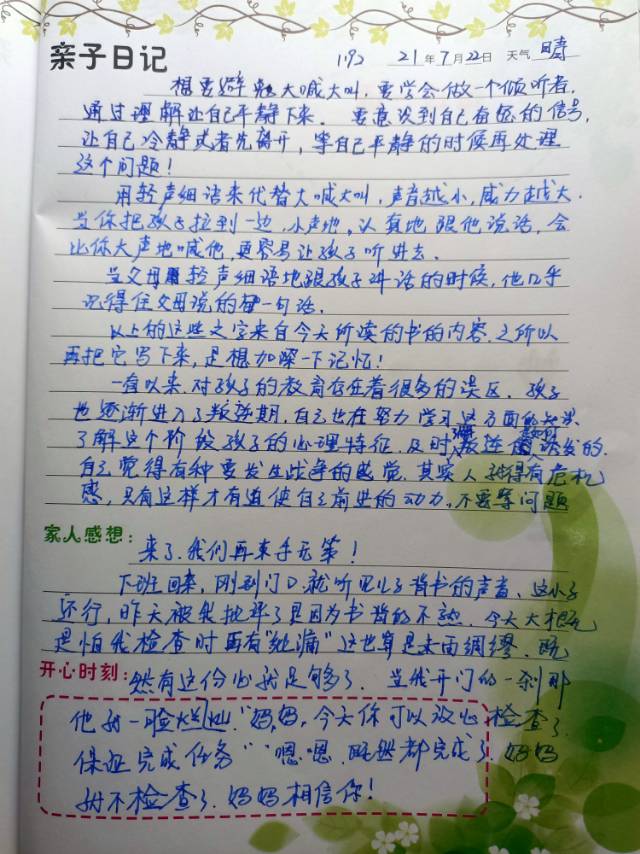 亲子日记 192 21年7月22日 天气 晴
想要避免大喊大叫,要学会做一个倾听者,
通过理解让自己平静下来。要意识到自己奋怒的信号,
让自己冷静或者先离开,等自己平静的时候再处理
这个问题!
用轻声细语来代替大喊大叫,声音越小,威力越大.
当你把孩子拉到一边,小声地,认真地跟他说话,会
比你大声地喊他,更容易让孩子听进去.
当父母用轻声细语地跟孩子讲话的时候,他几乎
记得住父母说的每一句话.
以上的这些文字来自今天所读的书的内容.之所以
再把它写下来,是想加深一下记忆!
一直以来.对孩子的教育存在着很多的误区.孩子
也逐渐进入了叛逆期,自己也在努力学习这方面的知识
了解这个阶段孩子的心理特征.及时 叛逆 的.
自己觉得有种要发生战争的感觉.其实人就得有危机
感,只有这样才有迫使自己前进的动力.不要等问题
家人感想:来了.我们再束手无策!
下班回来,刚到门口.就听见儿子背书的声音、这小子
还行,昨天被我批评了是因为书背的不熟.今天大概
是怕我检查时再有"纰漏"这也算是未雨绸缪.既
开心时刻:然有这份心就足够了.当我开门的一刹那
他对一脸灿烂."妈妈,今天你可以放心检查了.
保证完成任务""嗯.嗯.既然都完成了.妈妈
就不检查了.妈妈相信你!